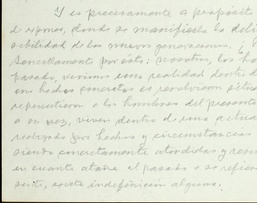 Y es precisamente a propósito
de egmas, donde se manifiesta la deli
cabilidad de las nuevas generaciones.
Sencillamente por esto: nosotros, los ho
pasado, vivimos una realidad dentro d
en hechos concretos se resolvieron
repercutieron a los hombres del presente
a su vez, viven dentro de una actual
realizada por hechos y circunstancias
siendo concretamente atendidas y
en cuanto atañe al pasado o se refiere
este, existe indefinición alguna.